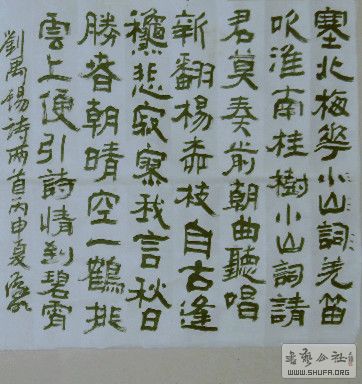 塞北梅華小山詞羌笛
吹淮南桂樹小山詞請
君莫奏前朝曲聽唱
新翻楊柳枝自古逢
龝悲寂寥我言秋日
勝春朝晴空一鶴排
雲上便引詩情到碧霄
劉禹錫詩兩首丙申夏
书艺公社
WWW.SHUFA.ORG